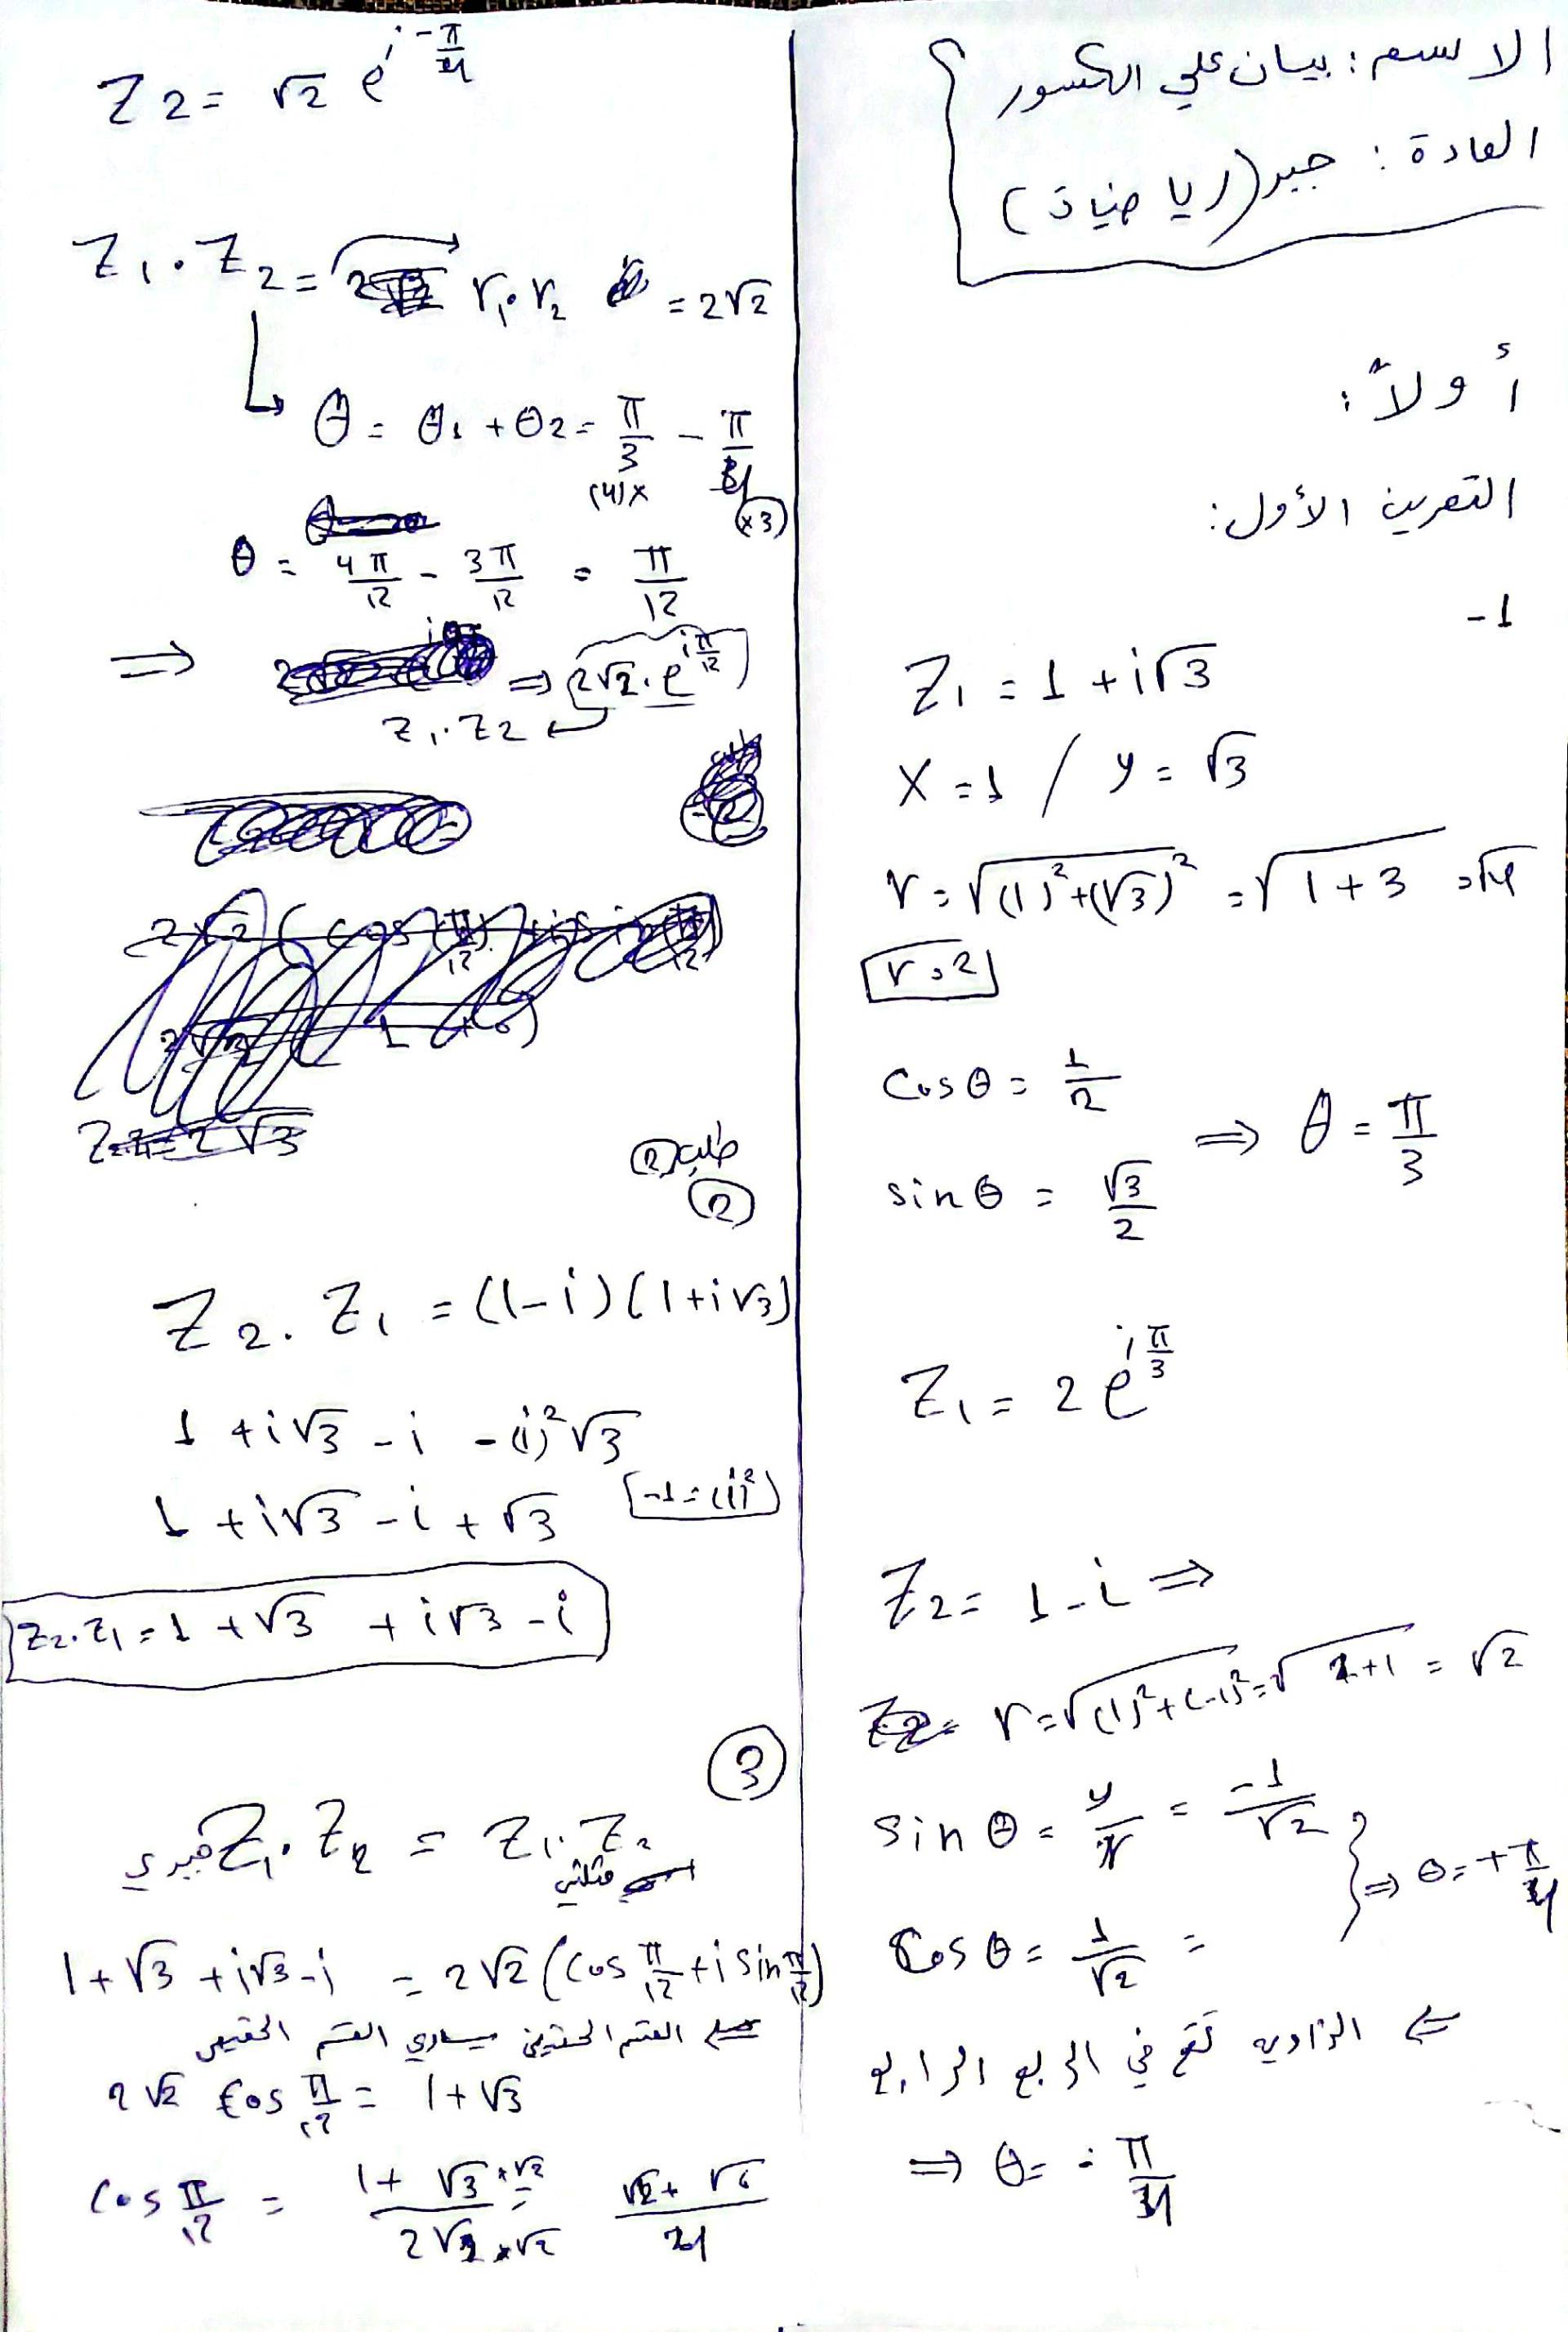 الاسم: بيان علي الكسور
المادة: جبر (رياضيات)
أولاً:
التمرين الأول:
-1
Z₁ = 1 + i√3
x = 1 / y = √3
r = √((1)² + (√3)²) = √(1 + 3) = √4
r = 2
cos θ = 1/2
⇒ θ = π/3
sin θ = √3/2
Z₁ = 2 e^(i π/3)
Z₂ = 1 - i ⇒
r = √((1)² + (-1)²) = √(1+1) = √2
sin θ = y/r = -1/√2
⇒ θ = + π/4
cos θ = 1/√2 =
⇐ الزاوية تقع في الربع الرابع
⇒ θ = - π/4
Z₂ = √2 e^(i -π/4)
Z₁ . Z₂ = r₁ . r₂ = 2√2
θ = θ₁ + θ₂ = π/3 - π/4
(4)× (×3)
θ = 4π/12 - 3π/12 = π/12
⇒ ⇒ 2√2 . e^(i π/12)
Z₁ . Z₂
2√2 ( cos (π/12)
Z₂.Z₁ = 2√3
طلب (2)
(2)
Z₂ . Z₁ = (1 - i)(1 + i√3)
1 + i√3 - i - (i)²√3
1 + i√3 - i + √3 [-1 = (i)²]
Z₂.Z₁ = 1 + √3 + i√3 - i
(3)
جبري Z₁ . Z₂ = Z₁ . Z₂
مثلثي
1 + √3 + i√3 - i = 2√2 (cos π/12 + i sin π/12)
القسم الحقيقي يساوي القسم الحقيقي
2√2 cos π/12 = 1 + √3
cos π/12 = (1 + √3 ×√2)/(2√2 ×√2) = (√2 + √6)/4